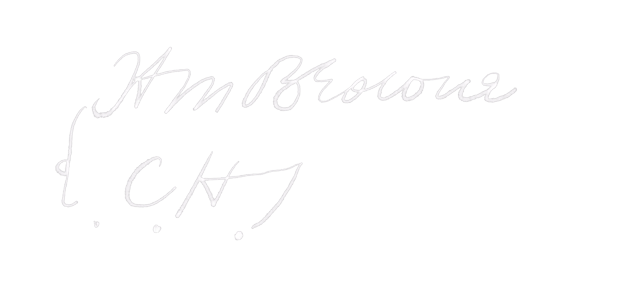 Hm Browne
C H J